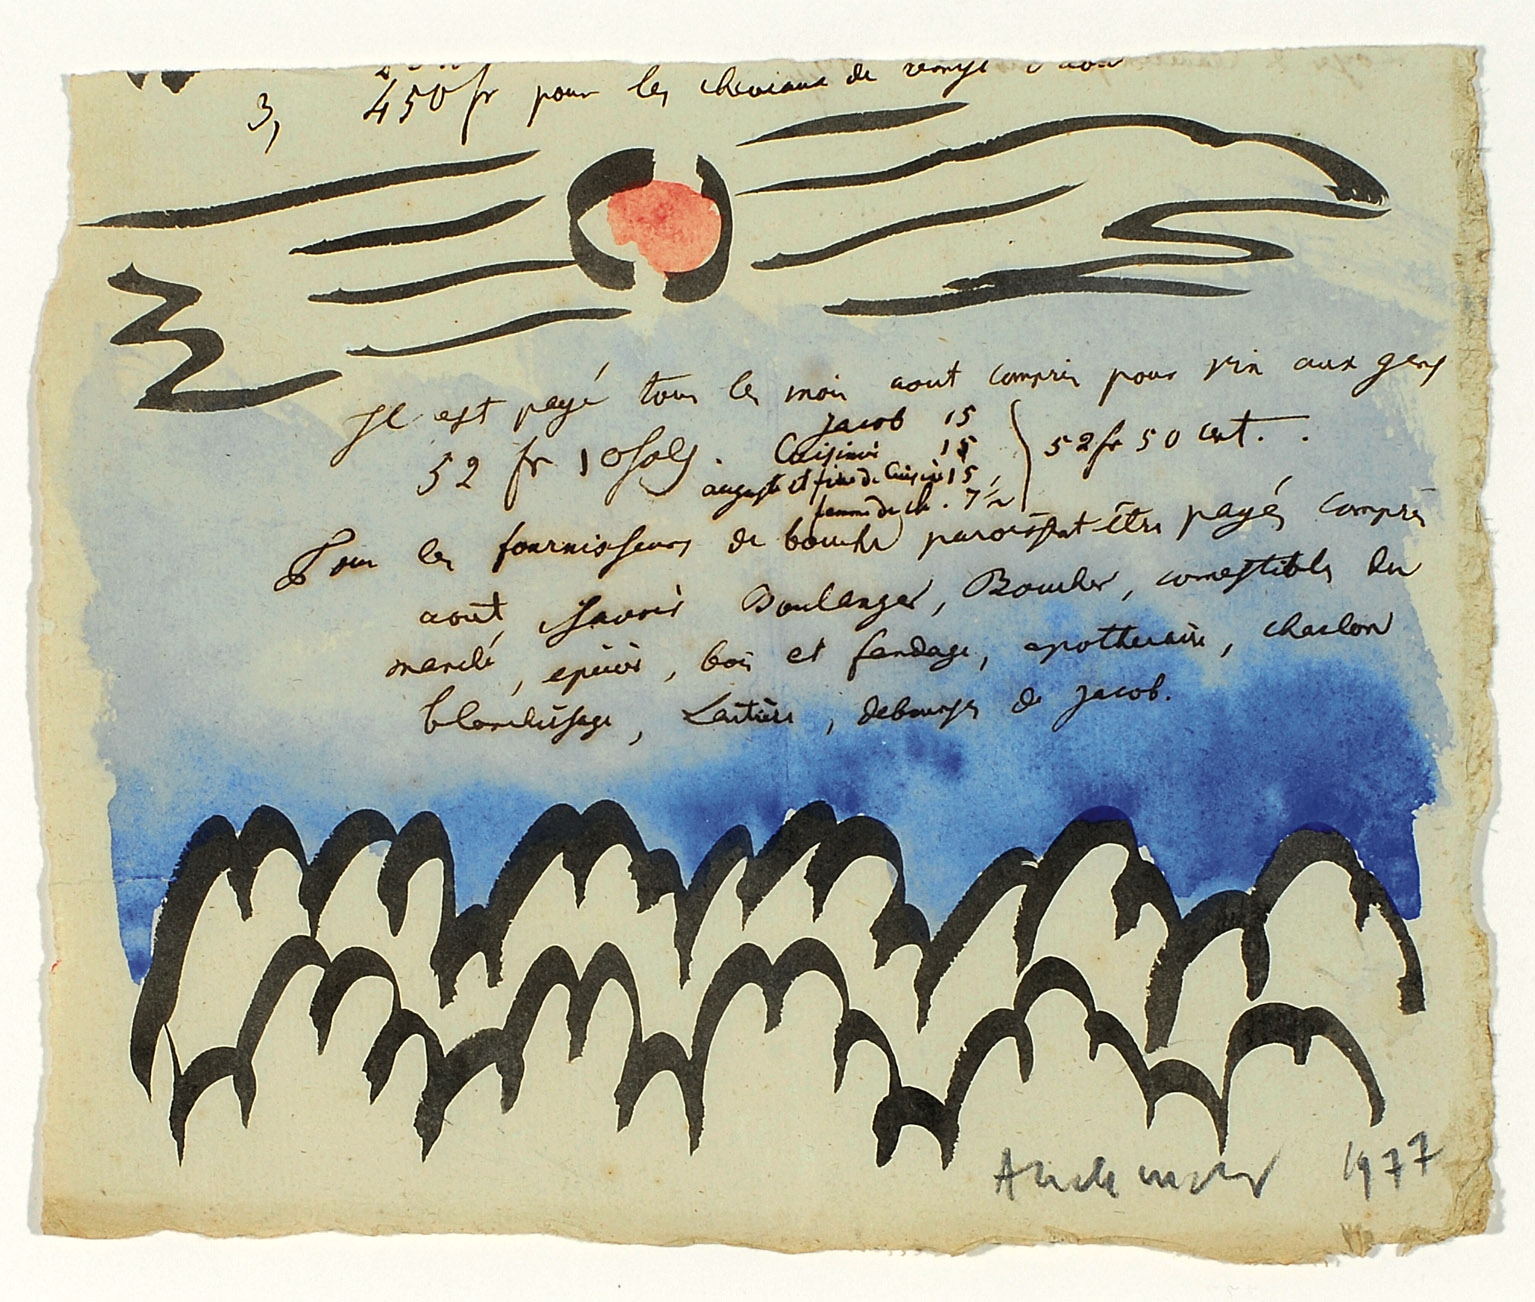 3, 450 fr pour les chevaux de remise
Il est payé tous les mois aout compris pour vin aux gens
52 fr 10 sols. Jacob 15
Cuisinier 15
auguste et fille de Cuisine 15
femme de ch. 7 ½
52 fr 50 cent.
Tous les fournisseurs de bouche paroissent être payés compris
aout, Savoir Boulanger, Boucher, comestibles du
marché, epicier, bois et fendage, apothicaire, charbon
blanchissage, Laitiere, debourses de Jacob.
Alechinsky 1977